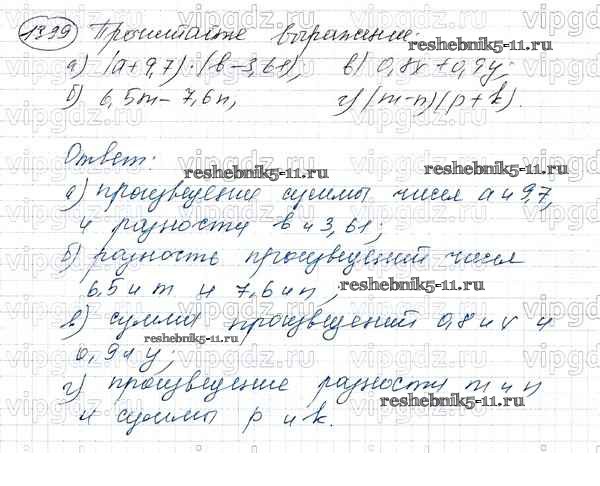 1399 Прочитайте выражение:
а) (a+9,7)·(b-3,61), в) 0,8x+0,9y;
б) 6,5m-7,6n, г) (m-n)(p+k).
Ответ:
а) произведение суммы чисел a и 9,7,
и разности b и 3,61;
б) разность произведений чисел
6,5 и m и 7,6 и n,
в) сумма произведений 0,8 и x и
0,9 и y;
г) произведение разности m и n
и суммы p и k.
reshebnik5-11.ru
reshebnik5-11.ru
reshebnik5-11.ru
reshebnik5-11.ru
reshebnik5-11.ru
reshebnik5-11.ru
reshebnik5-11.ru
vipgdz